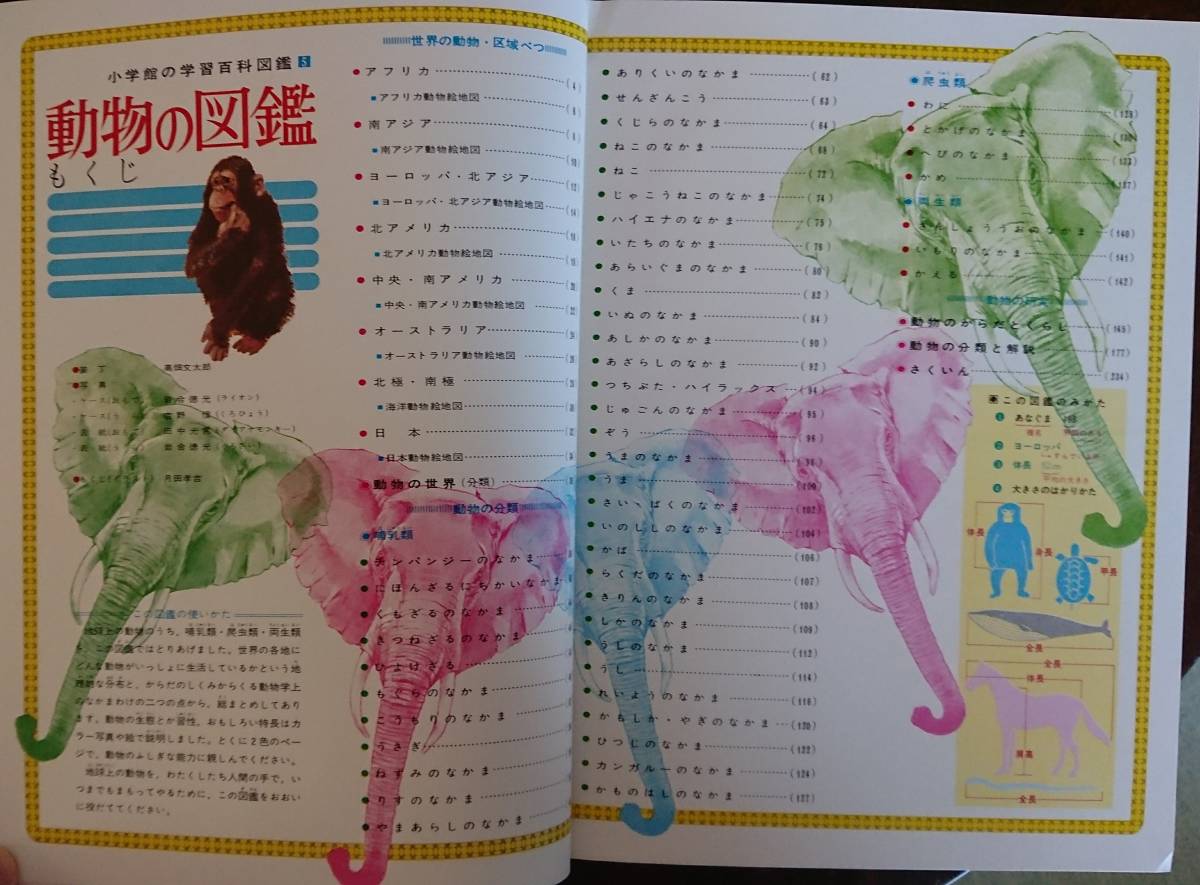 小学館の学習百科図鑑 5
動物の図鑑
もくじ
装丁 高畑文太郎
写真
岩合徳光(ライオン)
(くろひょう)
月田孝吉
この図鑑の使いかた
地球上の動物のうち、哺乳類・爬虫類・両生類
を、この図鑑ではとりあげました。世界の各地に
どんな動物がいっしょに生活しているかという地
理的な分布と、からだのしくみからくる動物学上
のなかまわけの二つの点から、総まとめしてあり
ます。動物の生態とか習性、おもしろい特長はカ
ラー写真や絵で説明しました。とくに2色のペー
ジで、動物のふしぎな能力に親しんでください。
地球上の動物を、わたくしたち人間の手で、い
つまでもまもってやるために、この図鑑をおおい
に役だててください。
世界の動物・区域べつ
アフリカ (4)
アフリカ動物絵地図
南アジア
南アジア動物絵地図 (10)
ヨーロッパ・北アジア (12)
ヨーロッパ・北アジア動物絵地図 (14)
北アメリカ
北アメリカ動物絵地図
中央・南アメリカ
中央・南アメリカ動物絵地図
オーストラリア
オーストラリア動物絵地図
北極・南極
海洋動物絵地図
日本
日本動物絵地図
動物の世界(分類)
動物の分類
哺乳類
チンパンジーのなかま
にほんざるにちかいなかま
くもざるのなかま
きつねざるのなかま
ひよけざる
もぐらのなかま
こうもりのなかま
うさぎ
ねずみのなかま
りすのなかま
やまあらしのなかま
ありくいのなかま (62)
せんざんこう (63)
くじらのなかま (64)
ねこのなかま (68)
ねこ (72)
じゃこうねこのなかま (74)
ハイエナのなかま (75)
いたちのなかま (76)
あらいぐまのなかま (80)
くま (82)
いぬのなかま (84)
あしかのなかま (90)
あざらしのなかま (92)
つちぶた・ハイラックス (94)
じゅごんのなかま (95)
ぞう (96)
うまのなかま (98)
うま (100)
さい・ばくのなかま (102)
いのししのなかま (104)
かば (106)
らくだのなかま (107)
きりんのなかま (108)
しかのなかま (109)
うしのなかま (112)
うし (114)
れいようのなかま (116)
かもしか・やぎのなかま (120)
ひつじのなかま (122)
カンガルーのなかま (124)
かものはしのなかま (127)
爬虫類
わに (128)
とかげのなかま (130)
へびのなかま (133)
かめ (137)
両生類
さんしょううおのなかま (140)
いもりのなかま (141)
かえる (142)
動物の研究
動物のからだとくらし (145)
動物の分類と解説 (177)
さくいん (204)
この図鑑のみかた
1 あなぐま
種名
2 ヨーロッパ
3 体長
平均の大きさ
4 大きさのはかりかた
体長
身長
甲長
全長
全長
体長
肩高
全長